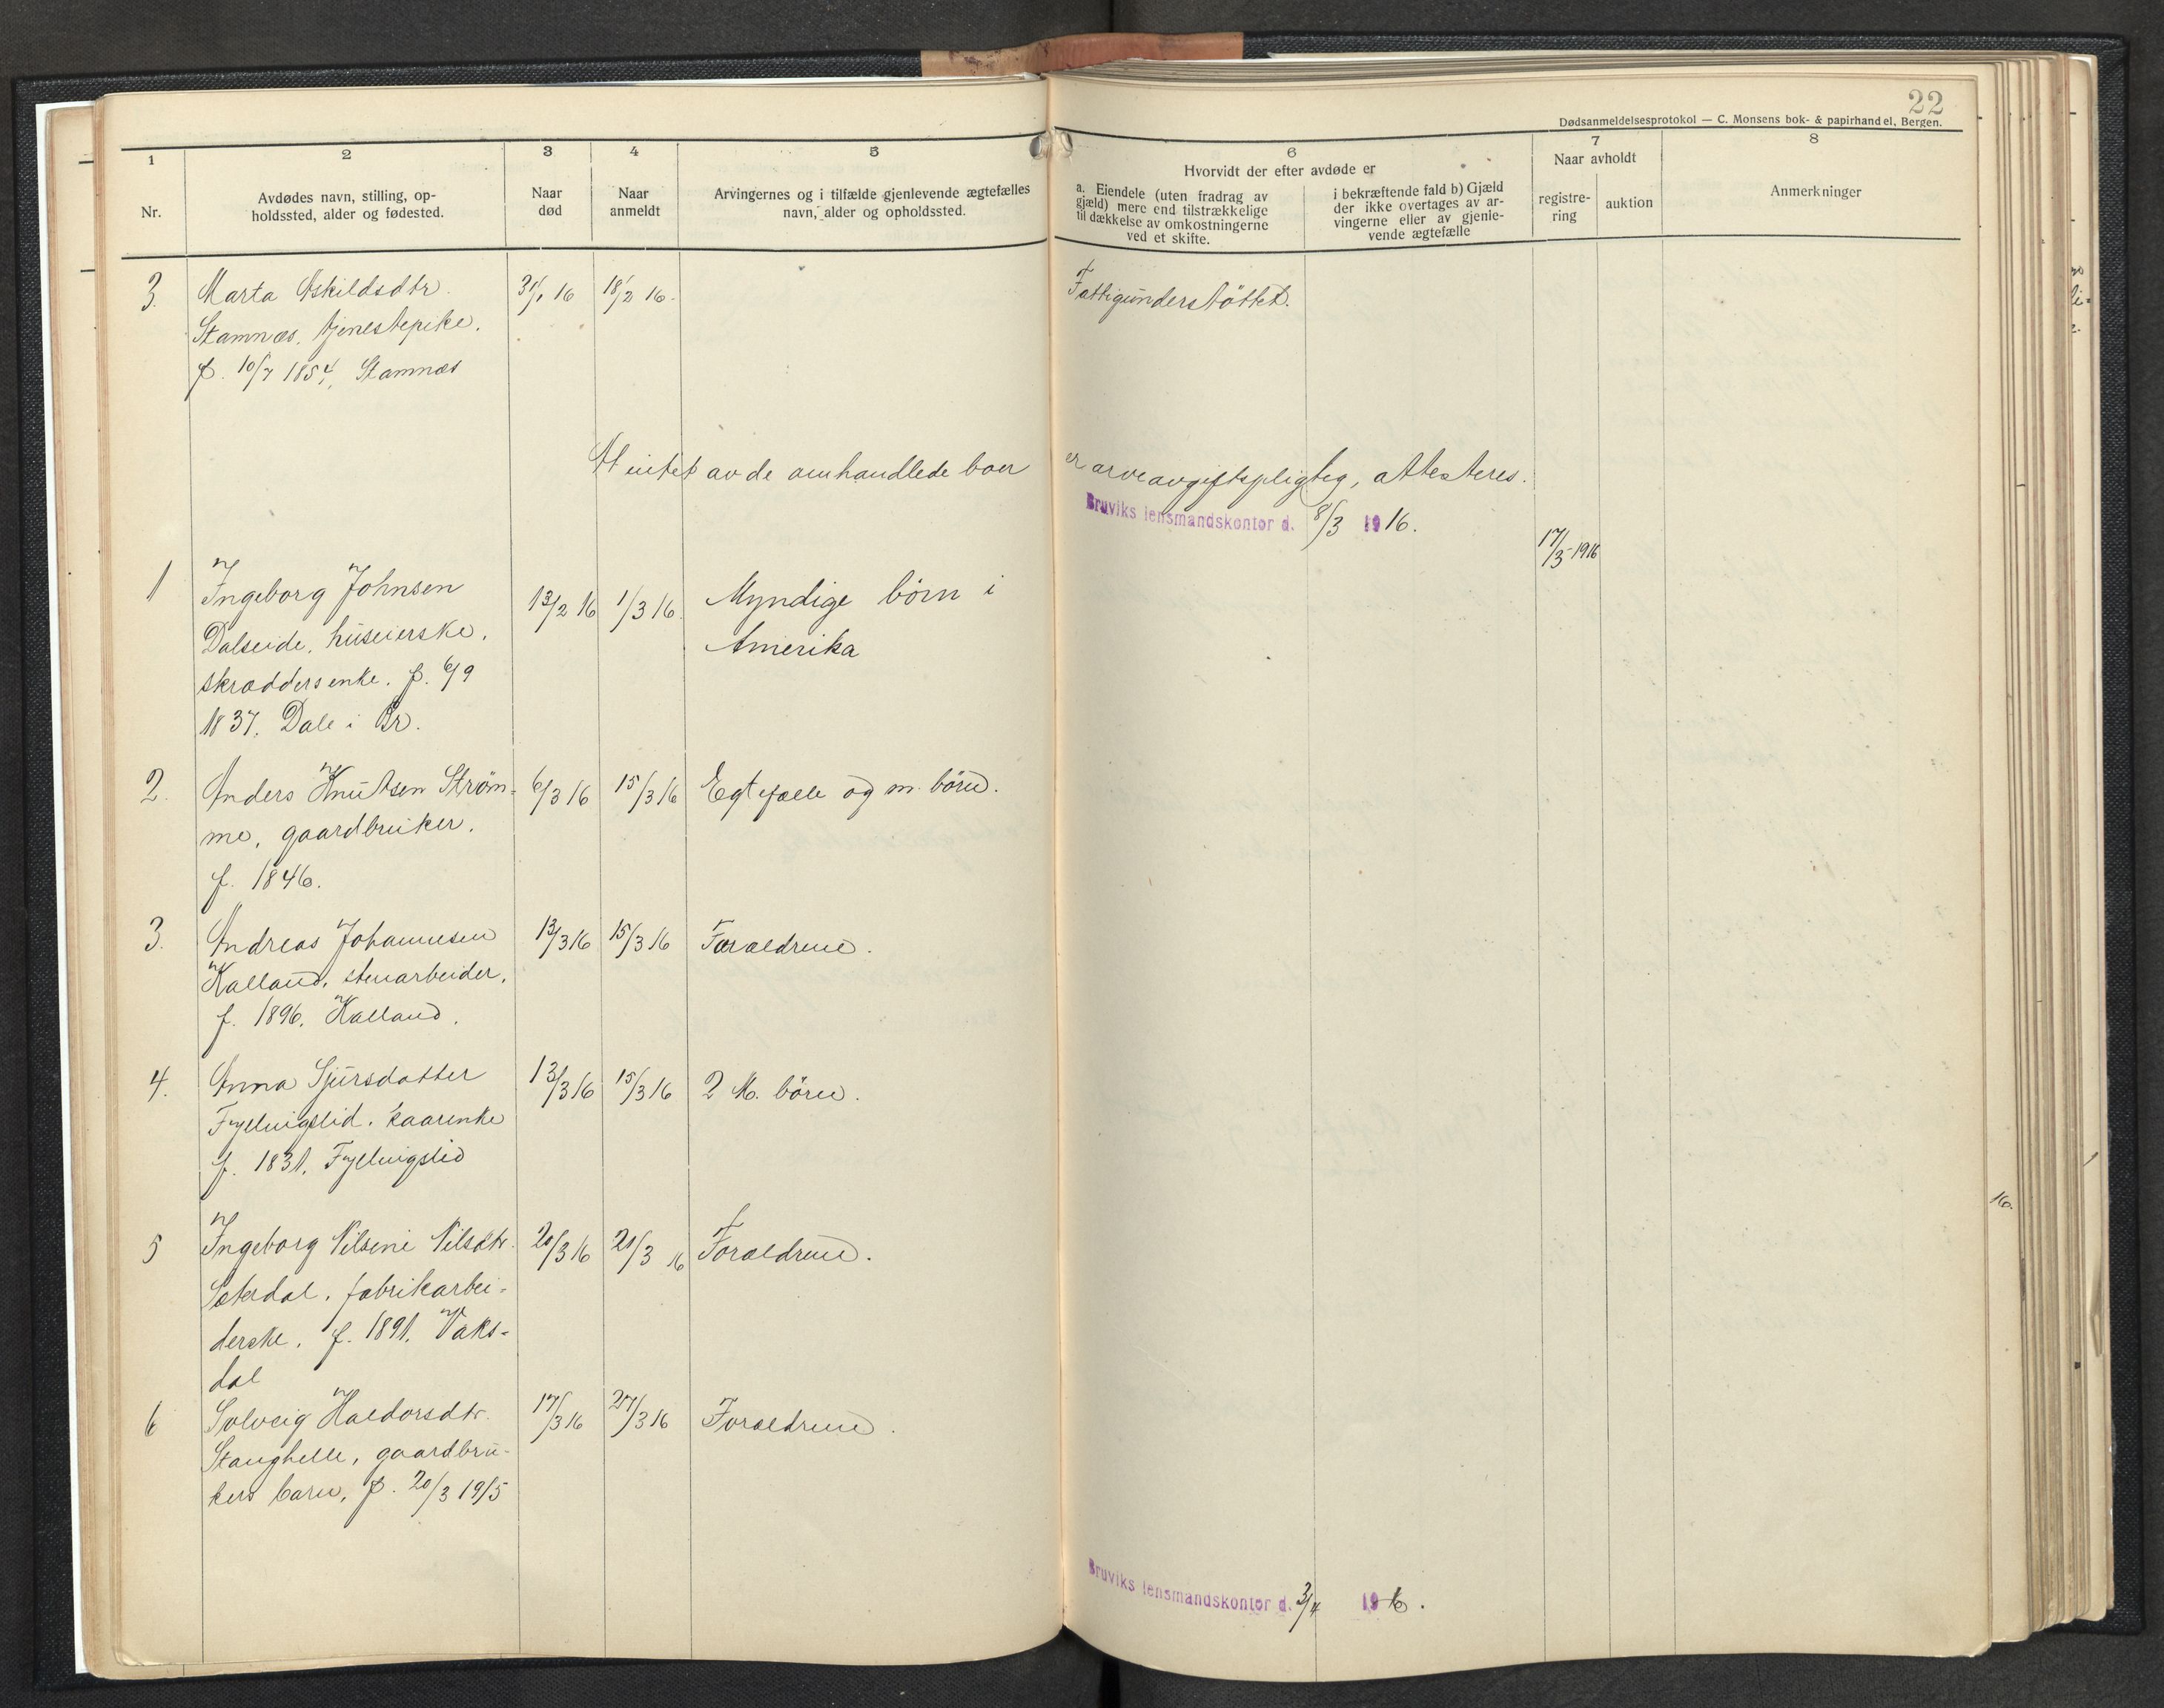 22
Dødsanmeldelsesprotokol — C. Monsens bok- & papirhandel, Bergen.
1
Nr.
2
Avdødes navn, stilling, op-
holdssted, alder og fødested.
3
Naar
død
4
Naar
anmeldt
5
Arvingernes og i tilfælde gjenlevende ægtefælles
navn, alder og opholdssted.
6
Hvorvidt der efter avdøde er
a. Eiendele (uten fradrag av
gjæld) mere end tilstrækkelige
til dækkelse av omkostningerne
ved et skifte.
i bekræftende fald b) Gjæld
der ikke overtages av ar-
vingerne eller av gjenle-
vende ægtefælle
7
Naar avholdt
registre-
ring
auktion
8
Anmerkninger
3. Marta Askildsdtr. 31/1 16 18/2 16. Fattigunderstöttet.
Stamnæs, tjenestepike.
f. 10/7 1854, Stamnæs
At intet av de omhandlede boer er arveavgiftspligtig, attesteres.
Bruviks lensmandskontor d. 8/3 1916.
17/3-1916
1 Ingeborg Johnsen 13/2 16 1/3 16. Myndige börn i
Dalseide, huseierske, Amerika
skræddersenke. f. 6/9
1837, Dale i Br.
2. Anders Knutsen Strøm- 6/3 16 15/3 16 Egtefælle og m. börn.
me, gaardbruker.
f. 1846.
3. Andreas Johannesen 13/3 16 15/3 16 Forældrene.
Kalland, stenarbeider,
f. 1896, Kalland.
4. Anna Sjursdatter 13/3 16 15/3 16 2 M. börn.
Fyllingslid. kaarenke
f. 1831, Fyllingslid
5 Ingeborg Nilsine Nilsdtr. 20/3 16 21/3 16 Forældrene.
Sæterdal, fabrikarbei-
derske, f. 1891, Vaks-
dal
6 Solveig Haldorsdtr. 17/3 16 27/3 16 Forældrene.
Stanghelle, gaardbru-
kers barn, f. 20/3 1915
Bruviks lensmandskontor d. 3/4 1916.
16.